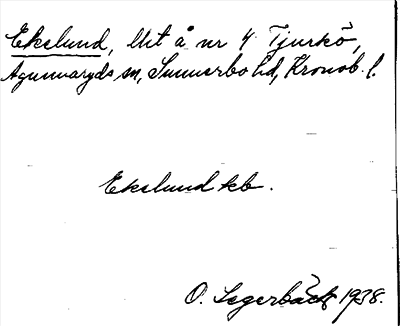 Ekelund, lht å nr 4 Tjurkö,
Agunnaryds sn, Sunnerbo hd, Kronob. l.
Ekelund kb.
O. Lagerbäck 1938.